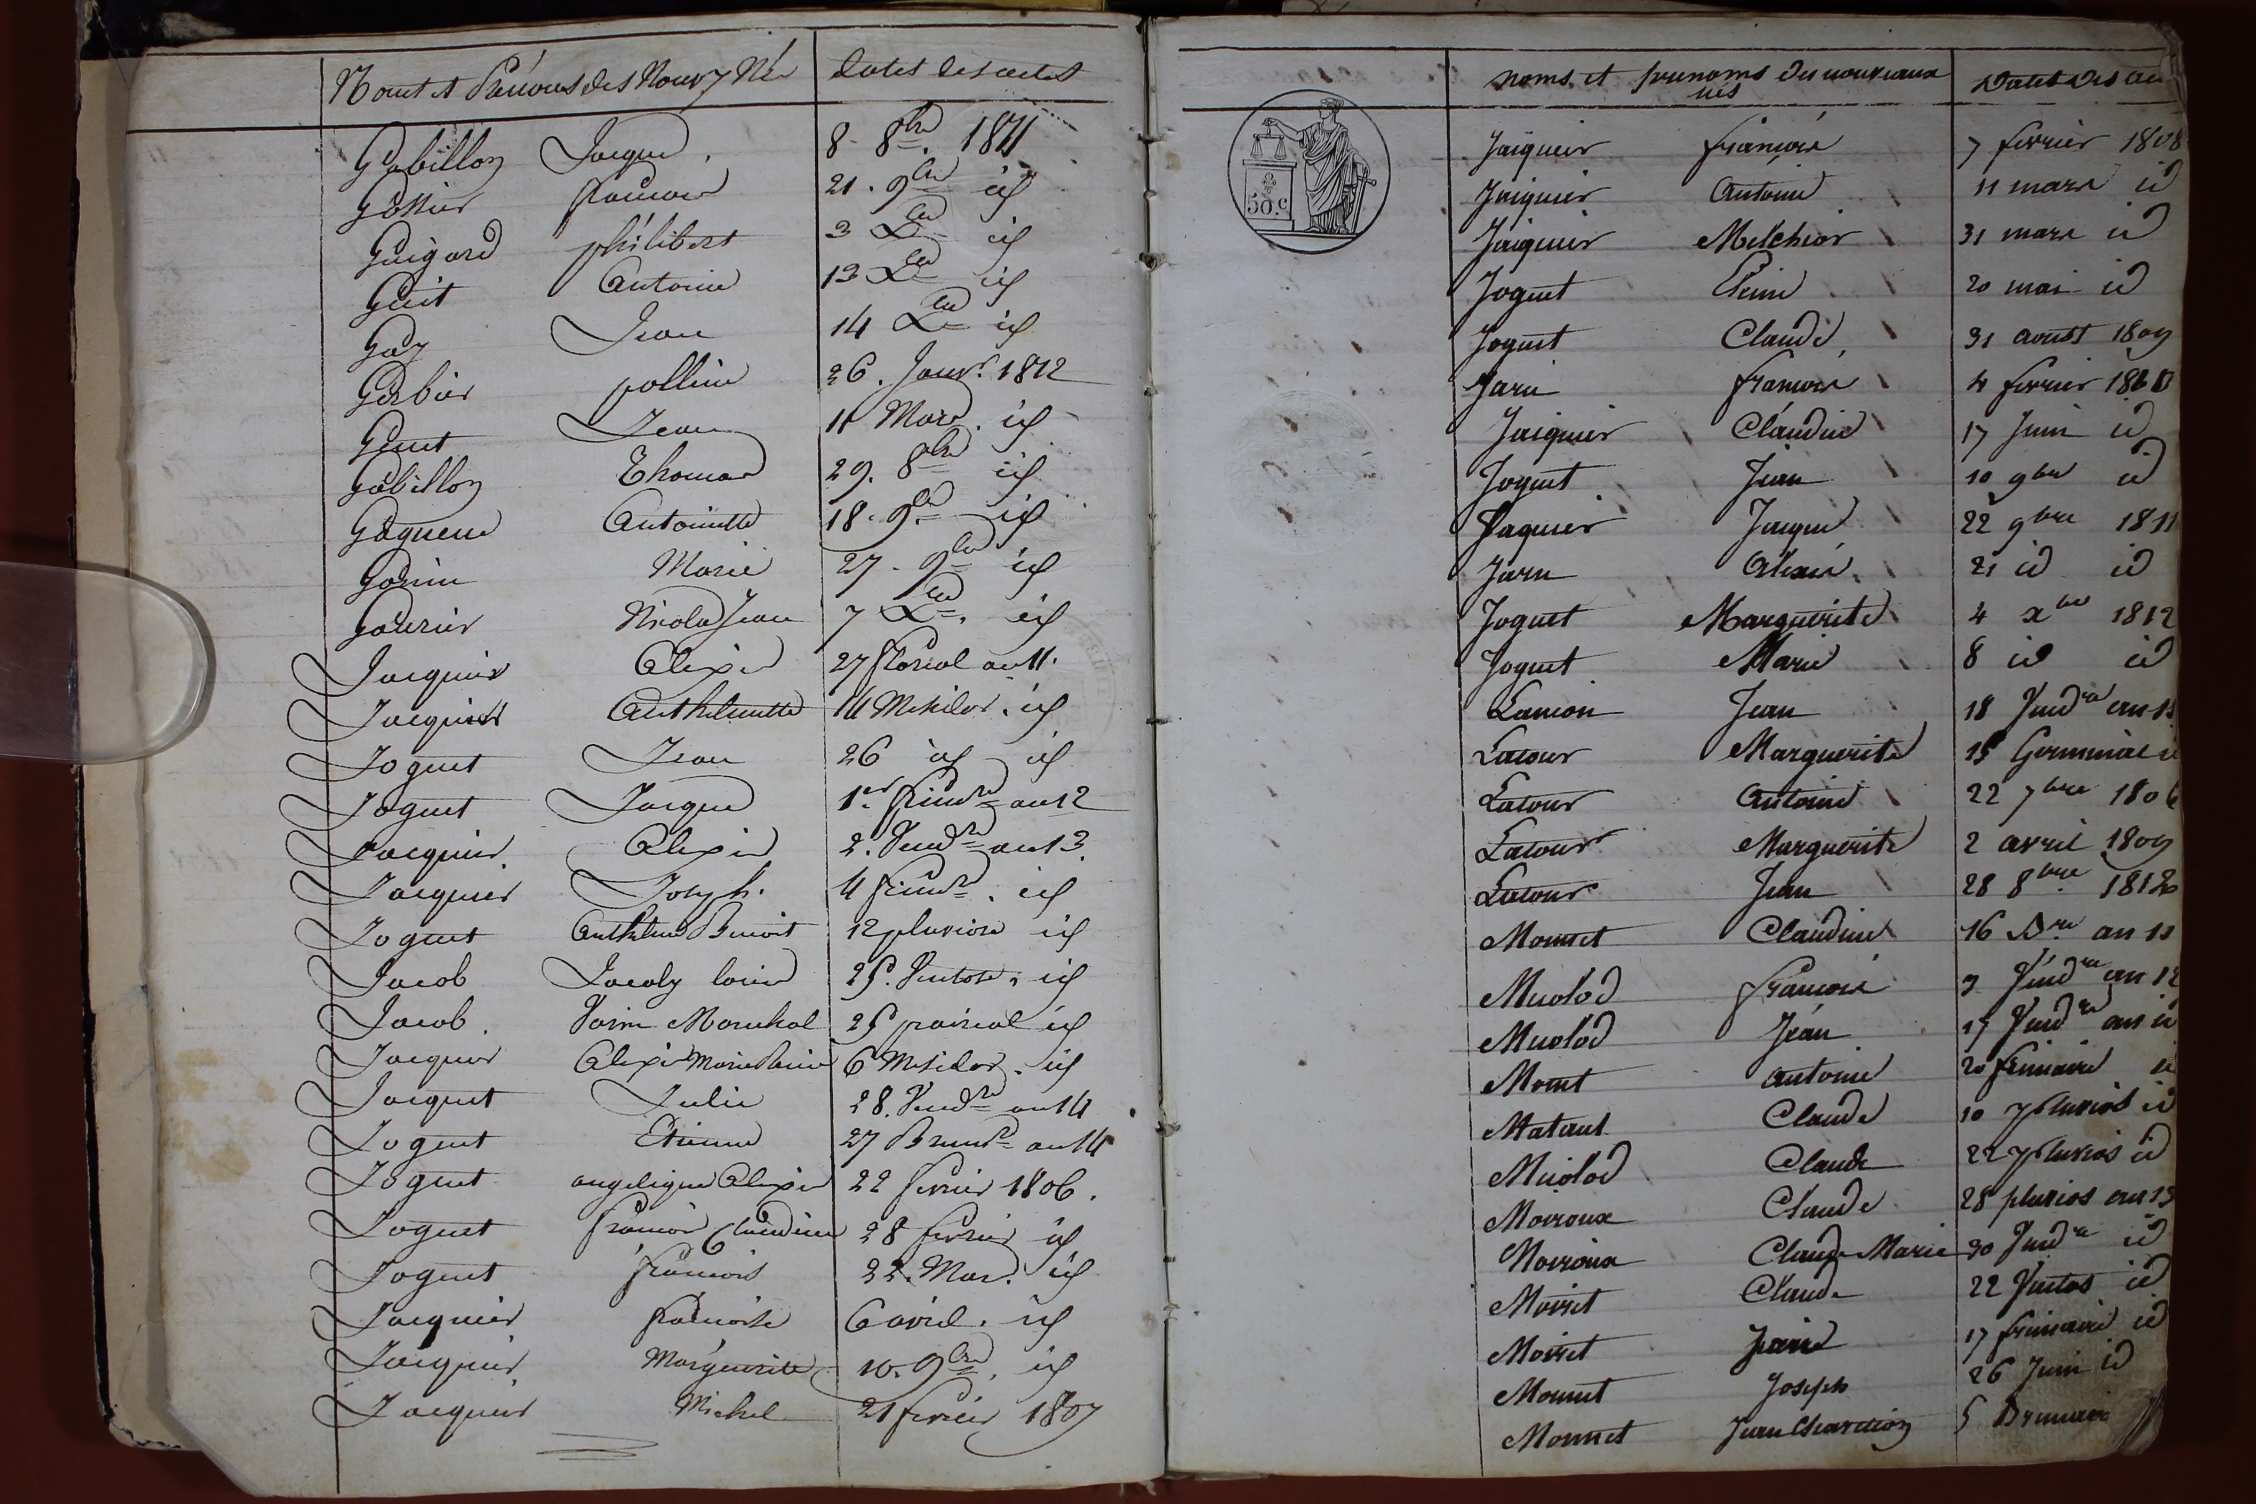 Noms et Prénoms des Nouv. Nés dates des actes
Gabillon Jacque. 8. 8bre. 1811
Gottier francois 21. 9bre id
Guigard philibert 3 Xbre id
Guit Antoine 13 Xbre id
Gay Jean 14 Xbre id
Gerbier polline 26. Janvr. 1812
Genet Jean 11 Mars. id
Gabillon Thomas 29. 8bre id
Antoinette 18. 9bre id
Gonin Marie 27. 9bre id
Nicolas Jean 7 Xbre. id
Jacquier Alexis 27 floréal an 11.
Jacquier Anthelmette 14 Messidor. id
Joguet Jean 26 id id
Joguet Jacque 1er frimre an 12
Jacquier. Alexis 2. Vendre an 13.
Jacquier Joseph. 4 frimre. id
Joguet Anthelme Benoit 12 pluviose id
Jacob Jacoby louis 25. Ventose. id
Jacob. Marechal 25 prairial id
Jacquier Alexis Marie 6 Messidor. id
Jacquet Julie 28. Vendre an 14
Joguet Etienne 27 Brumre an 14
Joguet angelique Alexis 22 fevrier 1806.
Joguet francois Claudine 28 fevrier id
Joguet francois 22. Mars. id
Jacquier francoise 6 avril. id
Jacquier Marguerite 10. 9bre. id
Jacquier Michel 21 fevrier 1807
noms et prenoms des nouveaux nés Dates des ac
50.c
Jaiquier francois 7 fevrier 1808
Jaiquier Antoine 11 mars id
Jaiquier Melchior 31 mars id
Joguet 20 mai id
Joguet Claude 31 aoust 1809
Jarin francois 4 fevrier 1810
Jaiquier Claudine 17 Juin id
Joguet Jean 10 9bre id
Jaquier Jacque 22 9bre 1811
Jarin Alexis. 21 id id
Joguet Marguerite 4 xbre 1812
Joguet Marie 8 id id
Lancon Jean 18 Vendre an 11
Latour Marguerite 15 Germinal id
Latour Antoine 22 7bre 1806
Latour Marguerite 2 avril 1809
Latour Jean 28 8bre 1812
Monnet Claudine 16 Bre an 11
Miolod francois 9 Vendre an 12
Miolod Jean 17 Vendre an id
Monet Antoine 20 frimaire id
Matant Claude 10 pluvios id
Miolod Claude 22 pluvios id
Moiroux Claude 28 pluvios an 13
Moiroux Claude Marie 30 Vendre id
Moiret Claude 22 Ventos id
Moiret 17 frimaire id
Monnet Joseph 26 Juin id
Monnet Jean 5 Brumaire